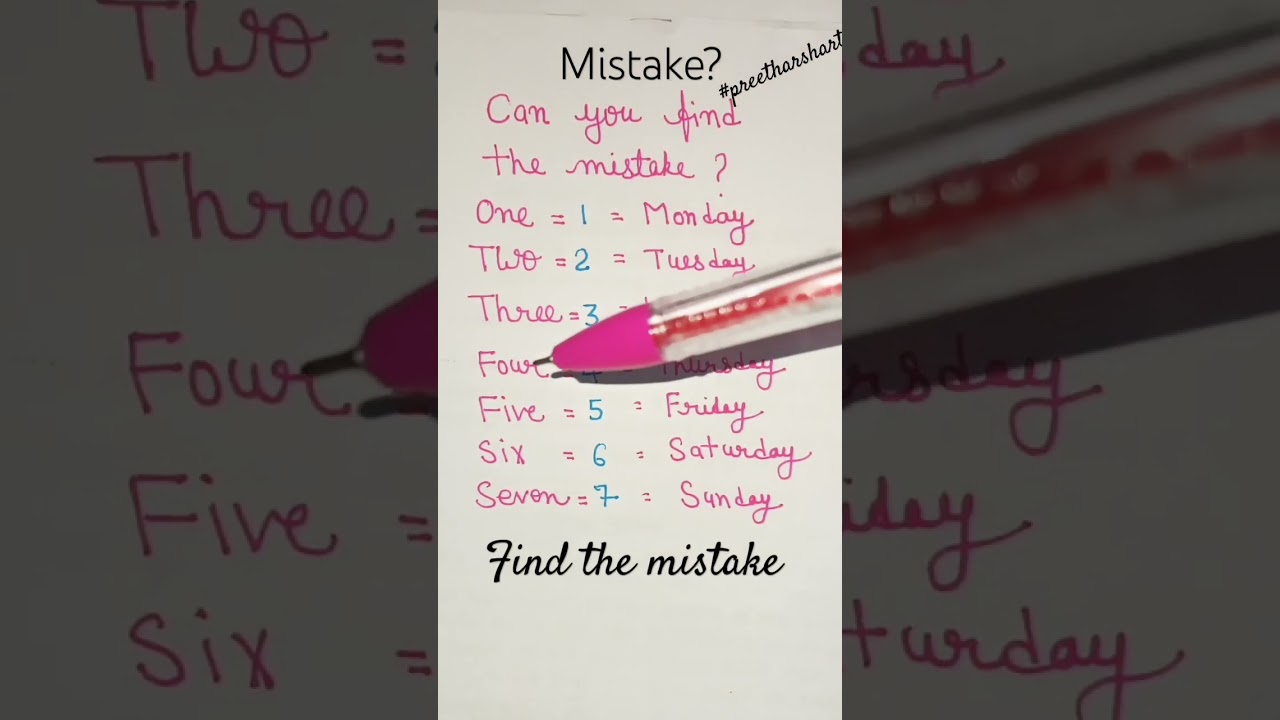 Mistake?
#preetharshart
Can you find
the mistake ?
One = 1 = Monday
Two = 2 = Tuesday
Three = 3 =
Four = 4 = Thursday
Five = 5 = Friday
Six = 6 = Saturday
Sevon = 7 = Sunday
Find the mistake